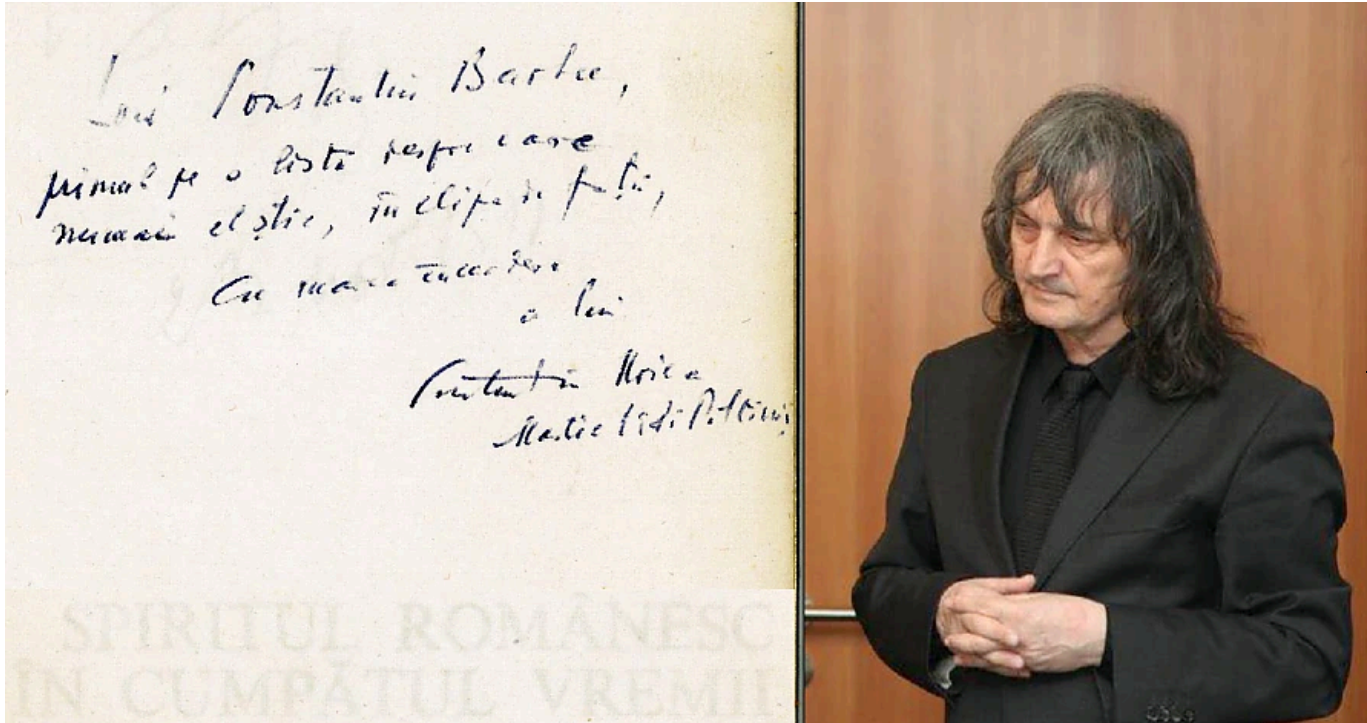 Lui Constantin Barbu,
primul pe o listă despre care
numai el știe, în clipa de față,
Cu marea încredere
a lui
Constantin Noica
Martie Păltiniș
SPIRITUL ROMÂNESC
ÎN CUMPĂTUL VREMII